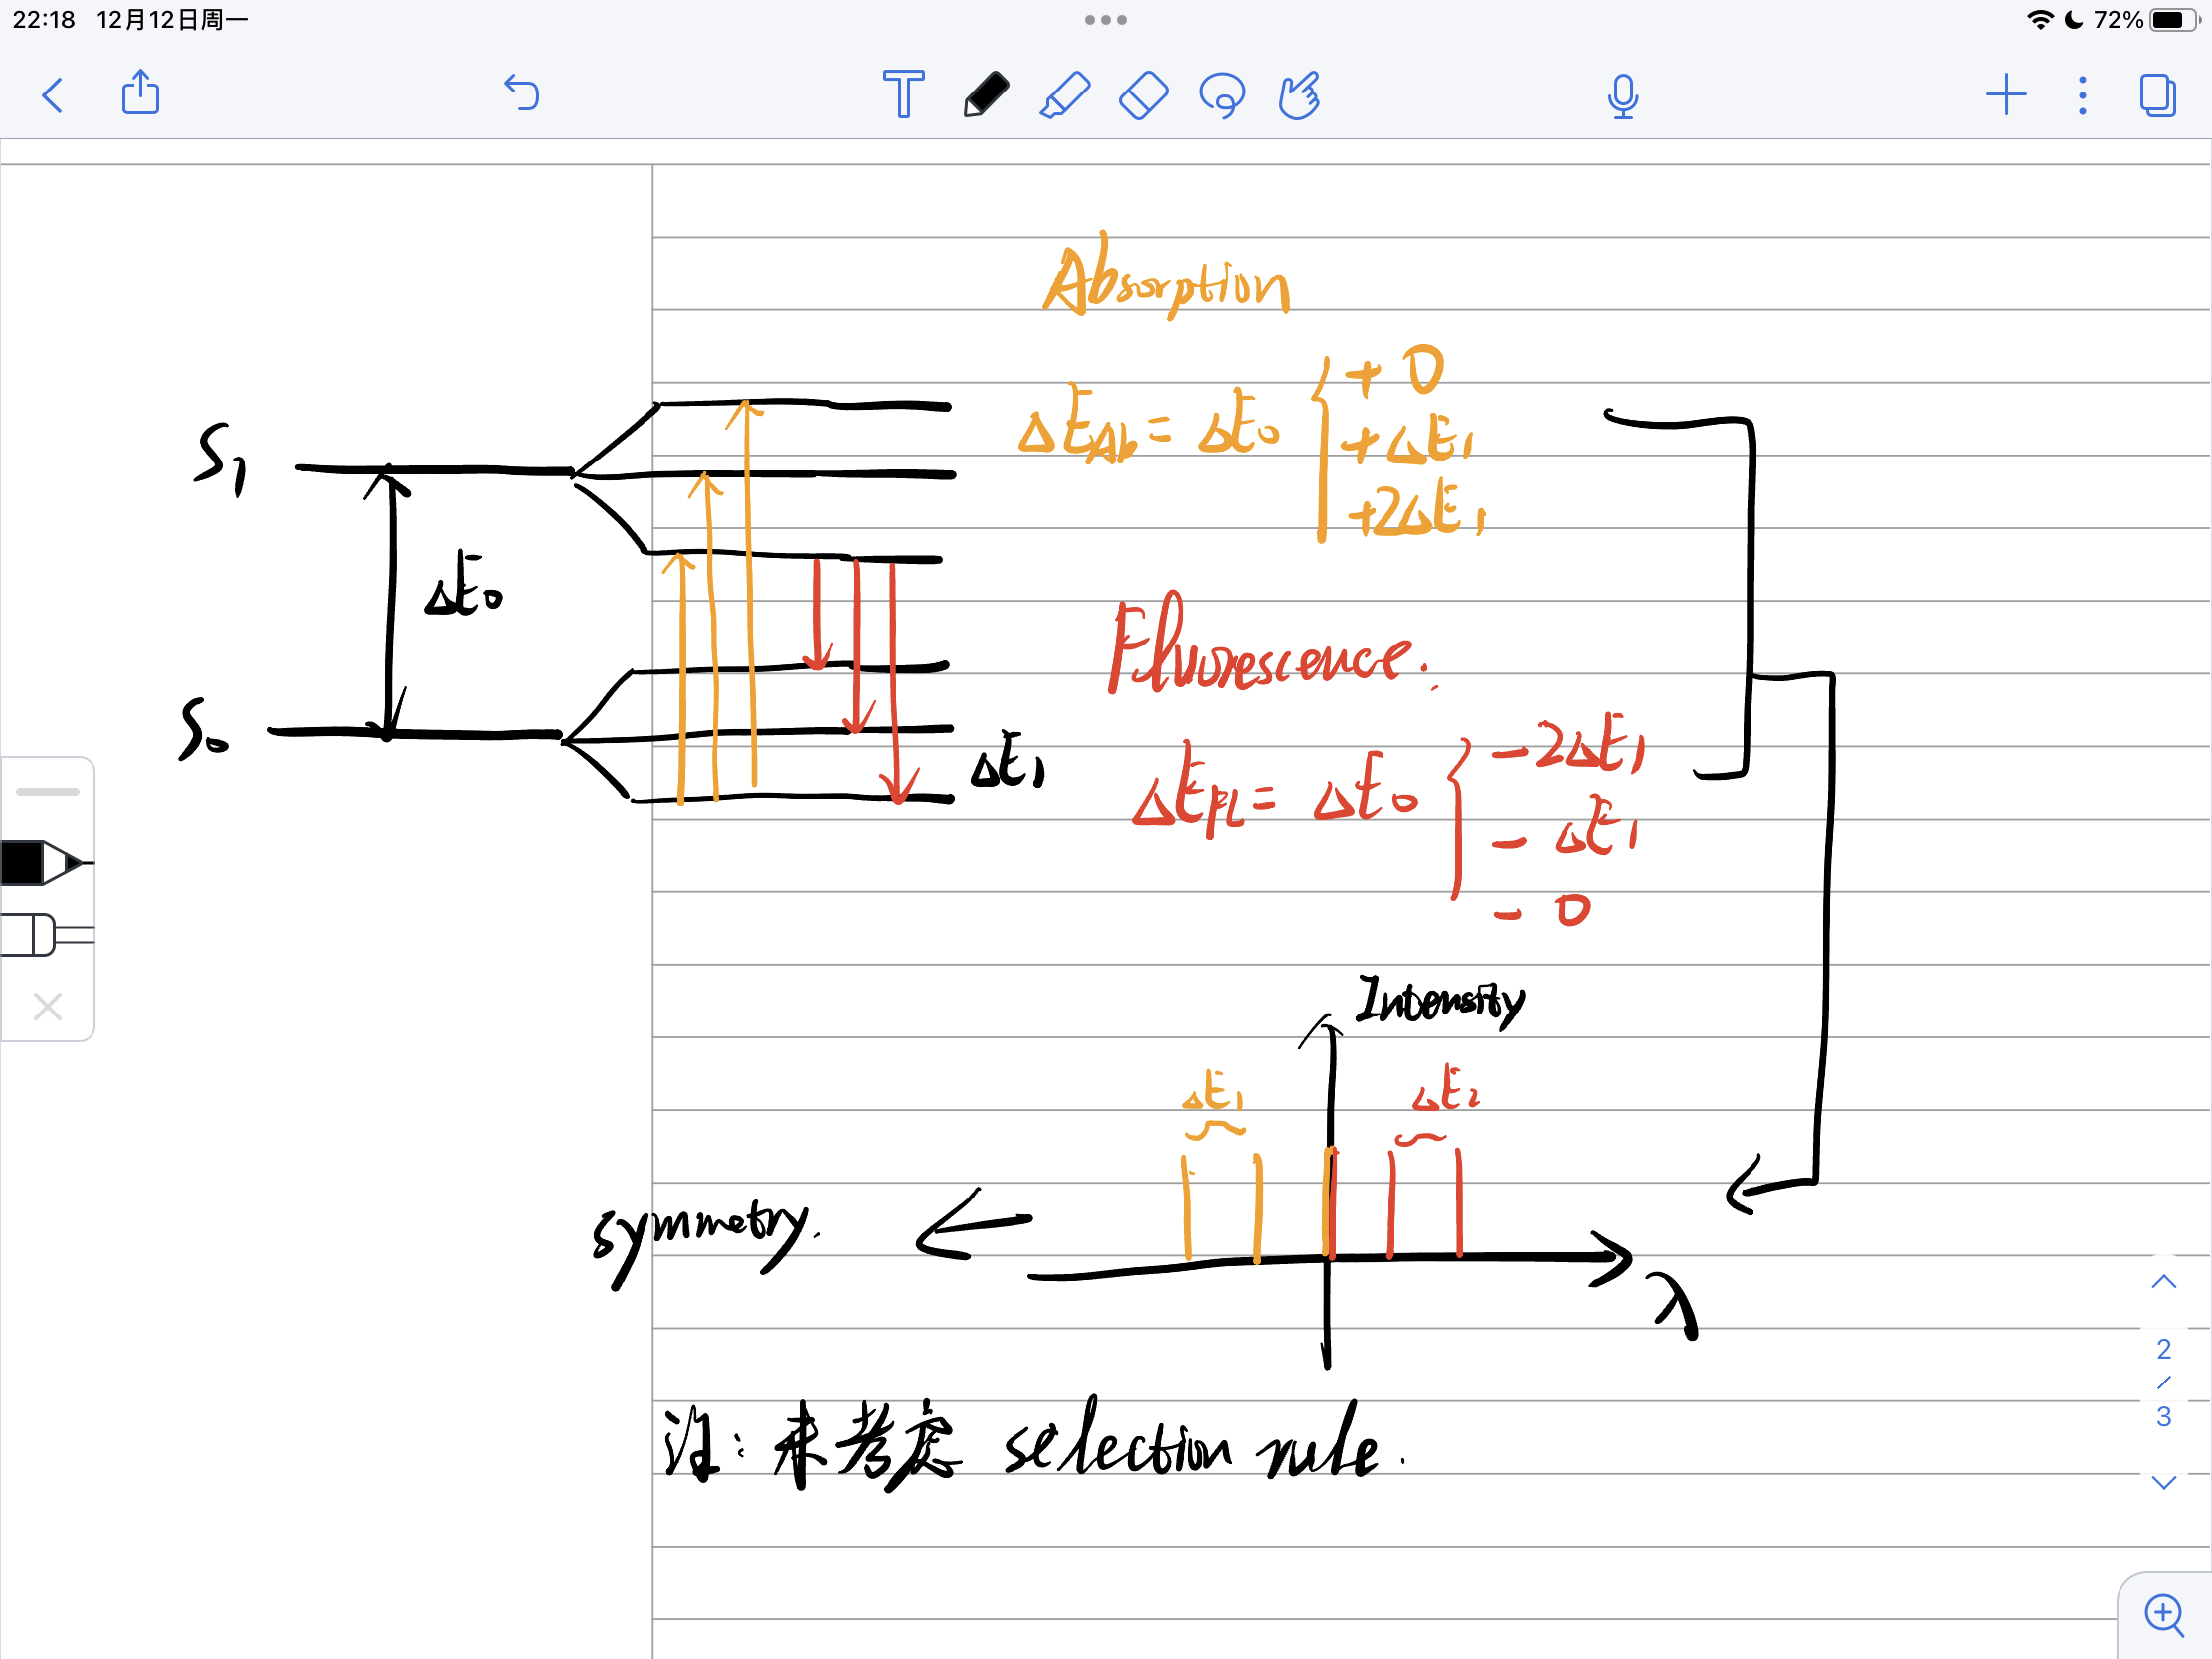 22:18 12月12日周一
72%
T
Absorption
ΔE_Ab = ΔE₀ { + 0
+ ΔE₁
+2ΔE₁
S₁
ΔE₀
Fluorescence.
S₀
ΔE₁
ΔE_FL = ΔE₀ { - 2ΔE₁
- ΔE₁
- 0
Intensity
ΔE₁
ΔE₂
symmetry.
λ
2
/
3
注: 未考虑 selection rule.